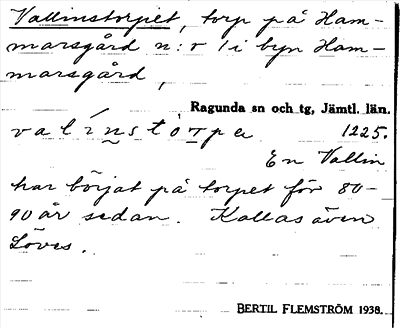 Vallinstorpet, torp på Ham-
marsgård n:r 1 i byn Ham-
marsgård,
Ragunda sn och tg, Jämtl. län.
valínstòrpa 1225.
En Vallin
har börjat på torpet för 80-
90 år sedan. Kallas även
Löves.
BERTIL FLEMSTRÖM 1938.